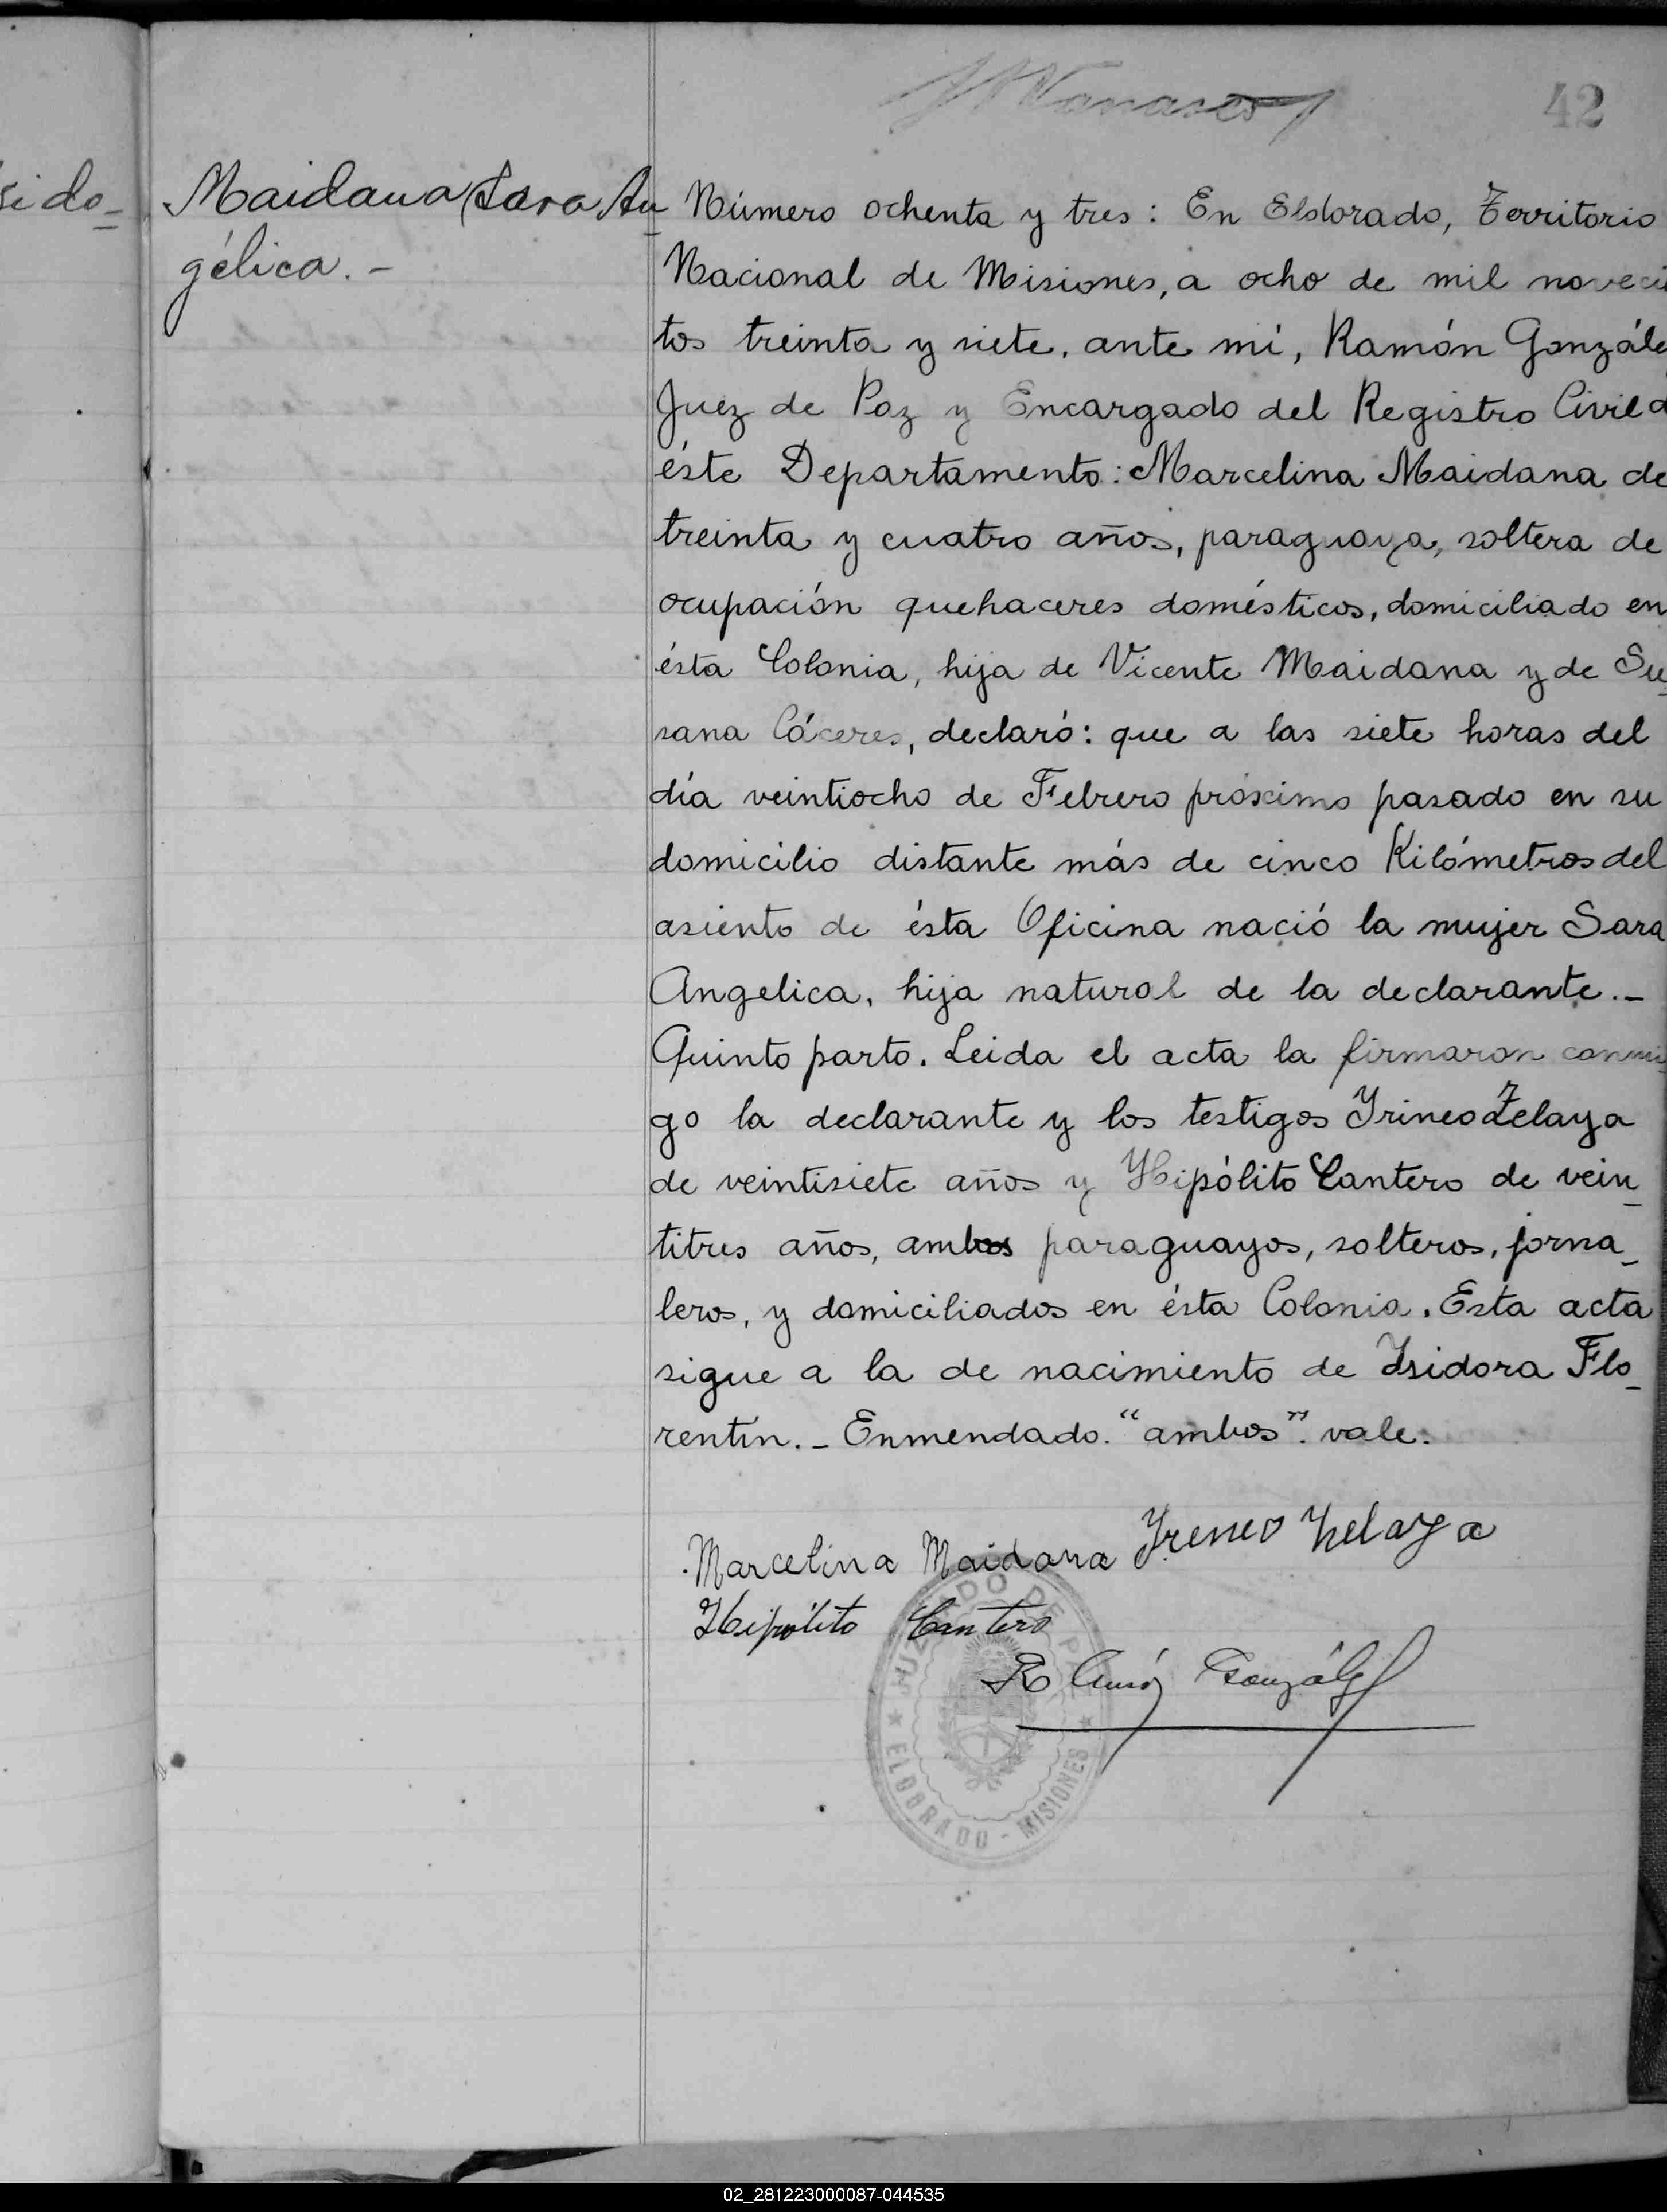 42
sido-
Maidana Sara An
gélica.-
Número ochenta y tres: En Eldorado, Territorio
Nacional de Misiones, a ocho de mil noveci
tos treinta y siete, ante mí, Ramón Gonzále
Juez de Paz y Encargado del Registro Civil d
éste Departamento: Marcelina Maidana de
treinta y cuatro años, paraguaya, soltera de
ocupación quehaceres domésticos, domiciliado en
ésta Colonia, hija de Vicente Maidana y de Su-
sana Cáceres, declaró: que a las siete horas del
día veintiocho de Febrero próximo pasado en su
domicilio distante más de cinco Kilómetros del
asiento de ésta Oficina nació la mujer Sara
Angelica, hija natural de la declarante.-
Quinto parto. Leida el acta la firmaron conmi-
go la declarante y los testigos Yrineo Zelaya
de veintisiete años y Hipólito Cantero de vein-
titres años, ambos paraguayos, solteros, jorna-
leros, y domiciliados en ésta Colonia. Esta acta
sigue a la de nacimiento de Isidora Flo-
rentín.- Enmendado. "ambos". vale.
Marcelina Maidana Yreneo Zelaya
Hipólito Cantero
Ramón González
JUZGADO DE PAZ
★ ELDORADO - MISIONES ★
02_281223000087-044535